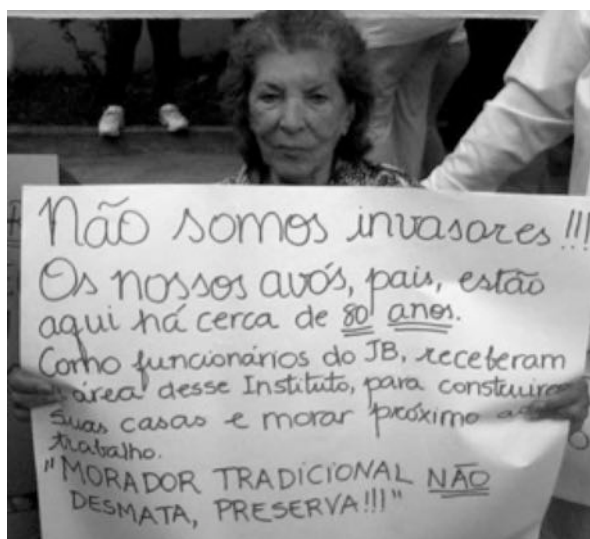 Não somos invasores!!!
Os nossos avós, pais, estão
aqui há cerca de 80 anos.
Como funcionários do JB, receberam
área desse Instituto, para construir
suas casas e morar próximo
trabalho.
"MORADOR TRADICIONAL NÃO
DESMATA, PRESERVA!!!"